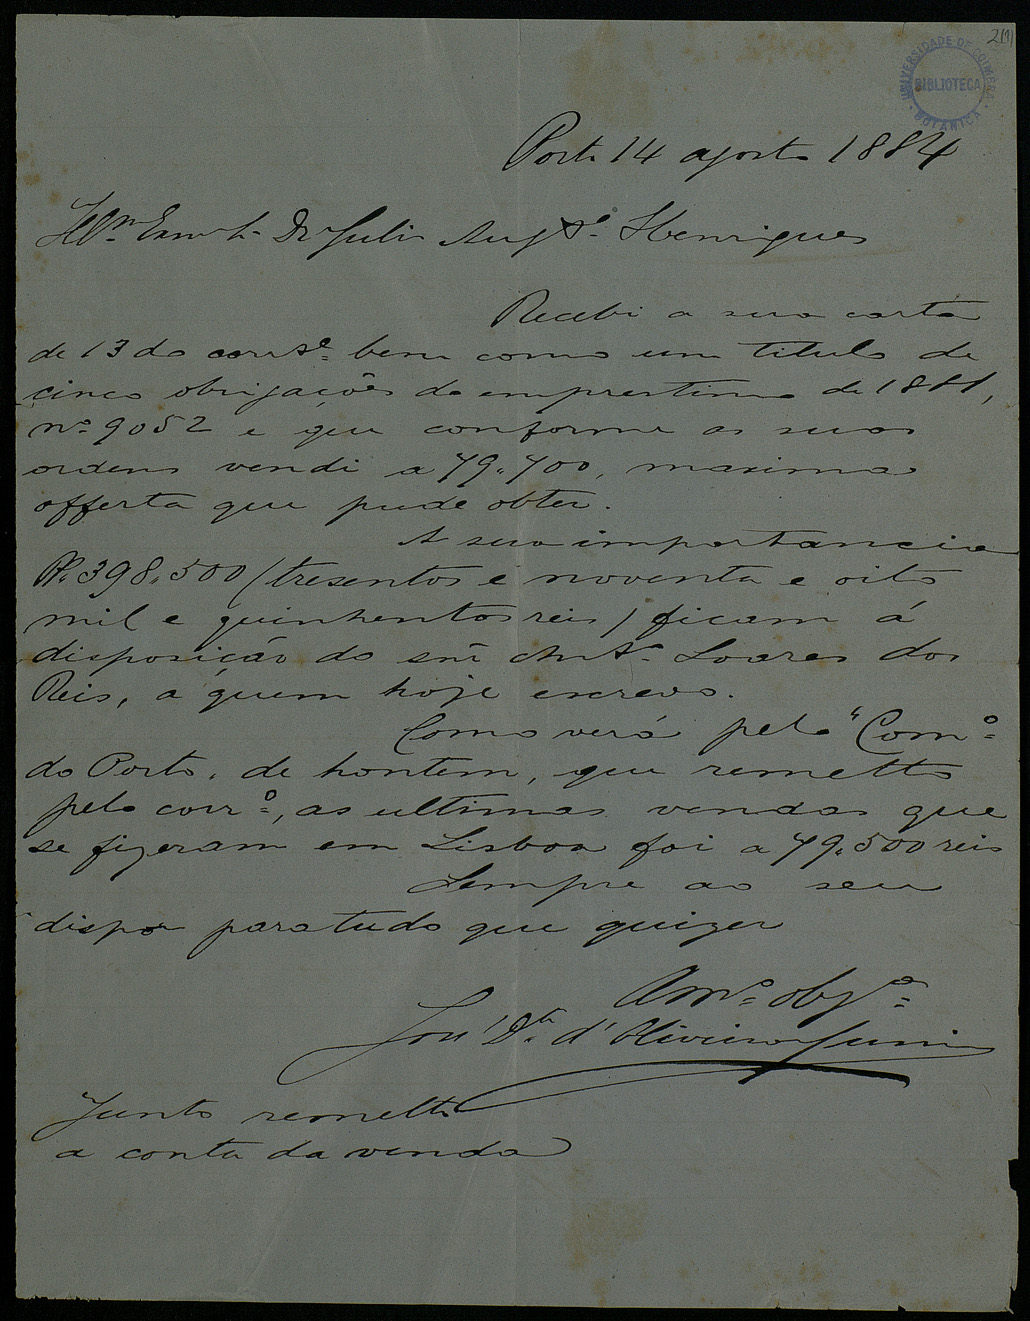 UNIVERSIDADE DE COIMBRA
BIBLIOTECA
BOTANICA
Porto 14 agosto 1884
Illmo Exmo Sr Dr Julio Augto Henriques
Recebi a sua carta
de 13 do corrte bem como um titulo de
cinco obrigações do emprestimo de 1881,
nº 9052 e que conforme as suas
ordens vendi a 79.700, maxima
offerta que pude obter.
A sua importancia
Rs 398.500 (tresentos e noventa e oito
mil e quinhentos reis) ficam á
disposição do snr Anto Soares dos
Reis, a quem hoje escrevo.
Como verá pelo "Como
do Porto" de hontem, que remetto
pelo corro, as ultimas vendas que
se fizeram em Lisboa foi a 79.500 reis
Sempre ao seu
dispor para tudo que quizer
Amo obgo
José Dte d'Oliveira Junior
Junto remetto
a conta da venda